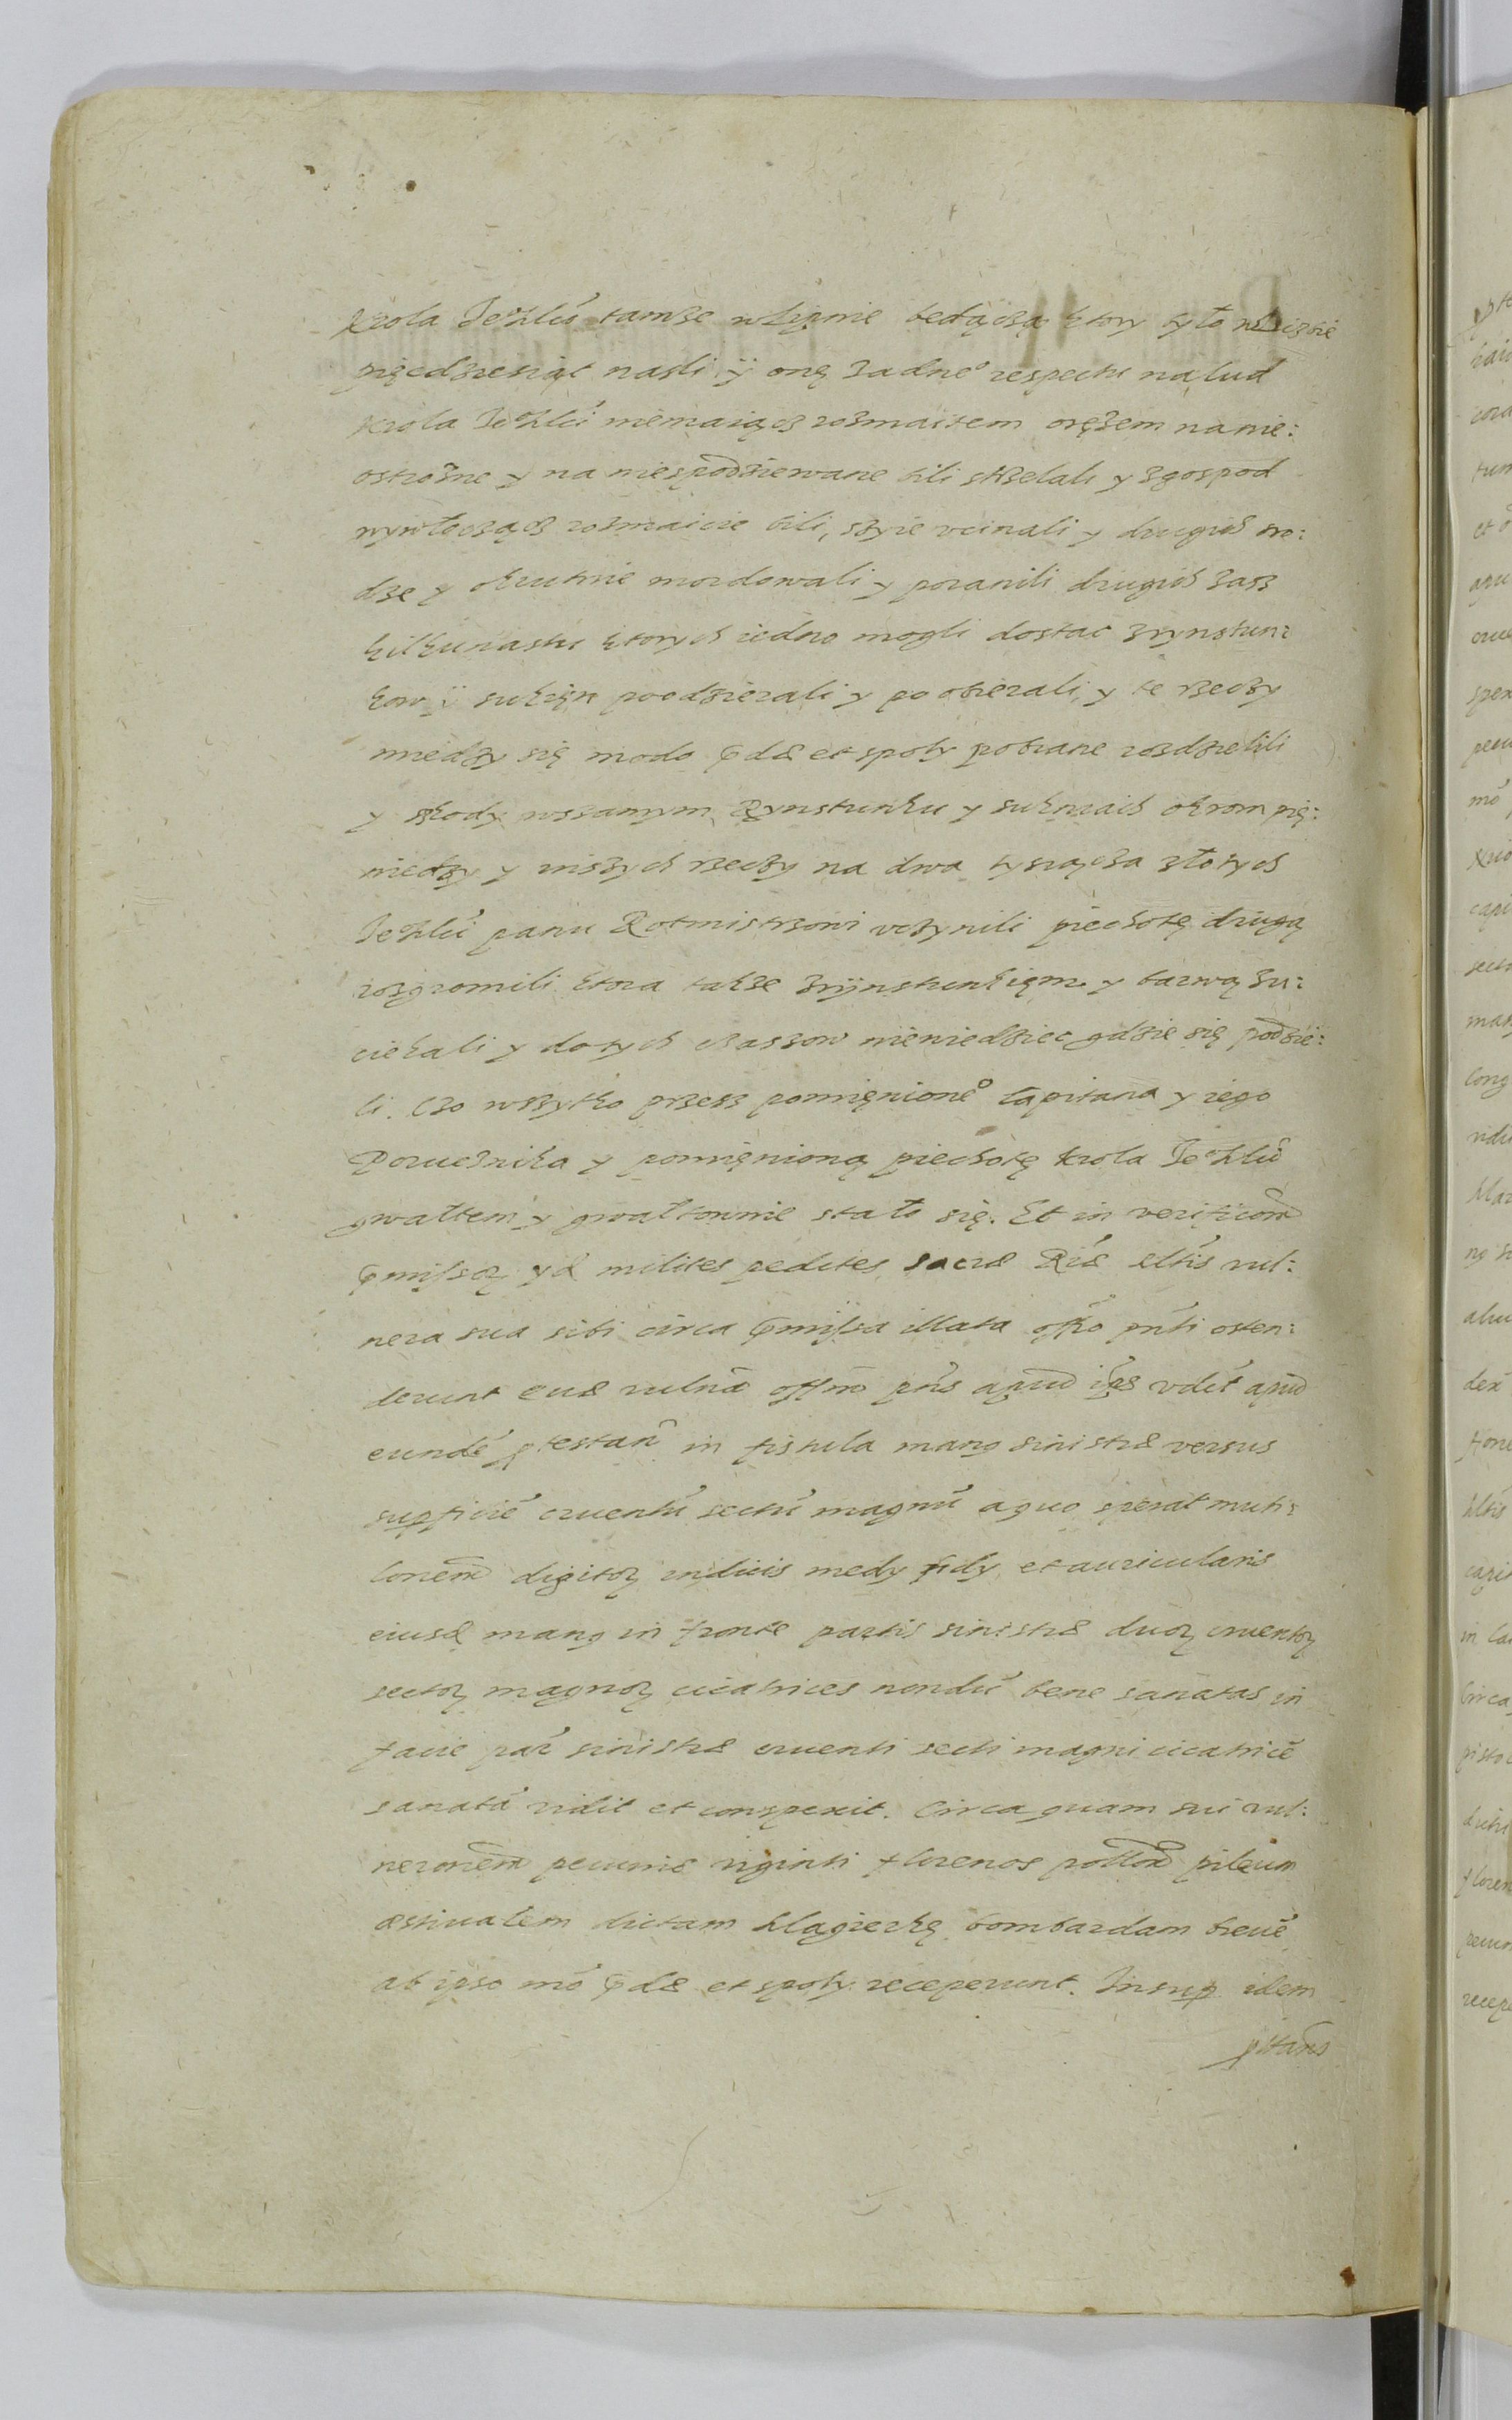 Krola Je° Mćů tamze wLipnie będączą ktory było wLiczbie
pięcdziesiąt naszli ÿ onę zadne° respectu na lud
Krola Je° Mći niemaiącz rozmaitem orężem na nie:
ostrożne y na niespodziewane bili strzelali y zgospod
wywłocząc rozmaicie bili, szyie ucinali y drugich sro:
dze y okrutnie mordowali y poranili drugich zasz
kilkunastu ktorych iedno mogli dostac zrynstun:
kow ÿ sukięn poodzierali y poobierali, y te rzeczy
miedzy się modo p̄dæ et spoly pobrane rozdzielili
y szkody wssamym Rynstunku y sukniach okrom pię:
niedzy y inszych rzeczy na dwa tysiącza złotych
Je° Mći panu Rotmistrzowi uczynili piechotę drugą
rozgromili ktora także zrÿnstunkięm y barwą zu:
ciekali y dotych czassow niewiedziec gdzie się podzie:
li. Czo wszytko przesz pomięnione° Capitana y iego
Porucznika y pomięnioną piechotę Krola Je° Mći
gwałtem y gwałtownie stało się. Et in verificoñe
p̄missoꝝ ÿd milites pedites sacræ Riæ Mtis vul:
nera sua sibi circa p̄missa illata offo pn̄ti osten:
derunt quæ vulna offm pn̄s apud ip̄s vdit apud
eundē ptestañ in fistula manꝯ sinistræ versus
supficiē cruentū sectū magnū a quo sperat muti:
lonem digitoꝝ indicis medy et auricularis
eiusd manꝯ in fronte partis sinistræ duoꝝ cruentoꝝ
sectoꝝ magnoꝝ cicatrices nondū bene sanatas in
facie par̄ sinistræ cruenti secti magni cicatricē
sanatā vidit et conspexit. Circa quam sui vul:
neronem pecuniæ viginti florenos polloñ pileum
æstivalem dictam Magierkę bombardam brevē
ab ipso mō p̄dæ et spoly receperunt. Insup idem
pttans